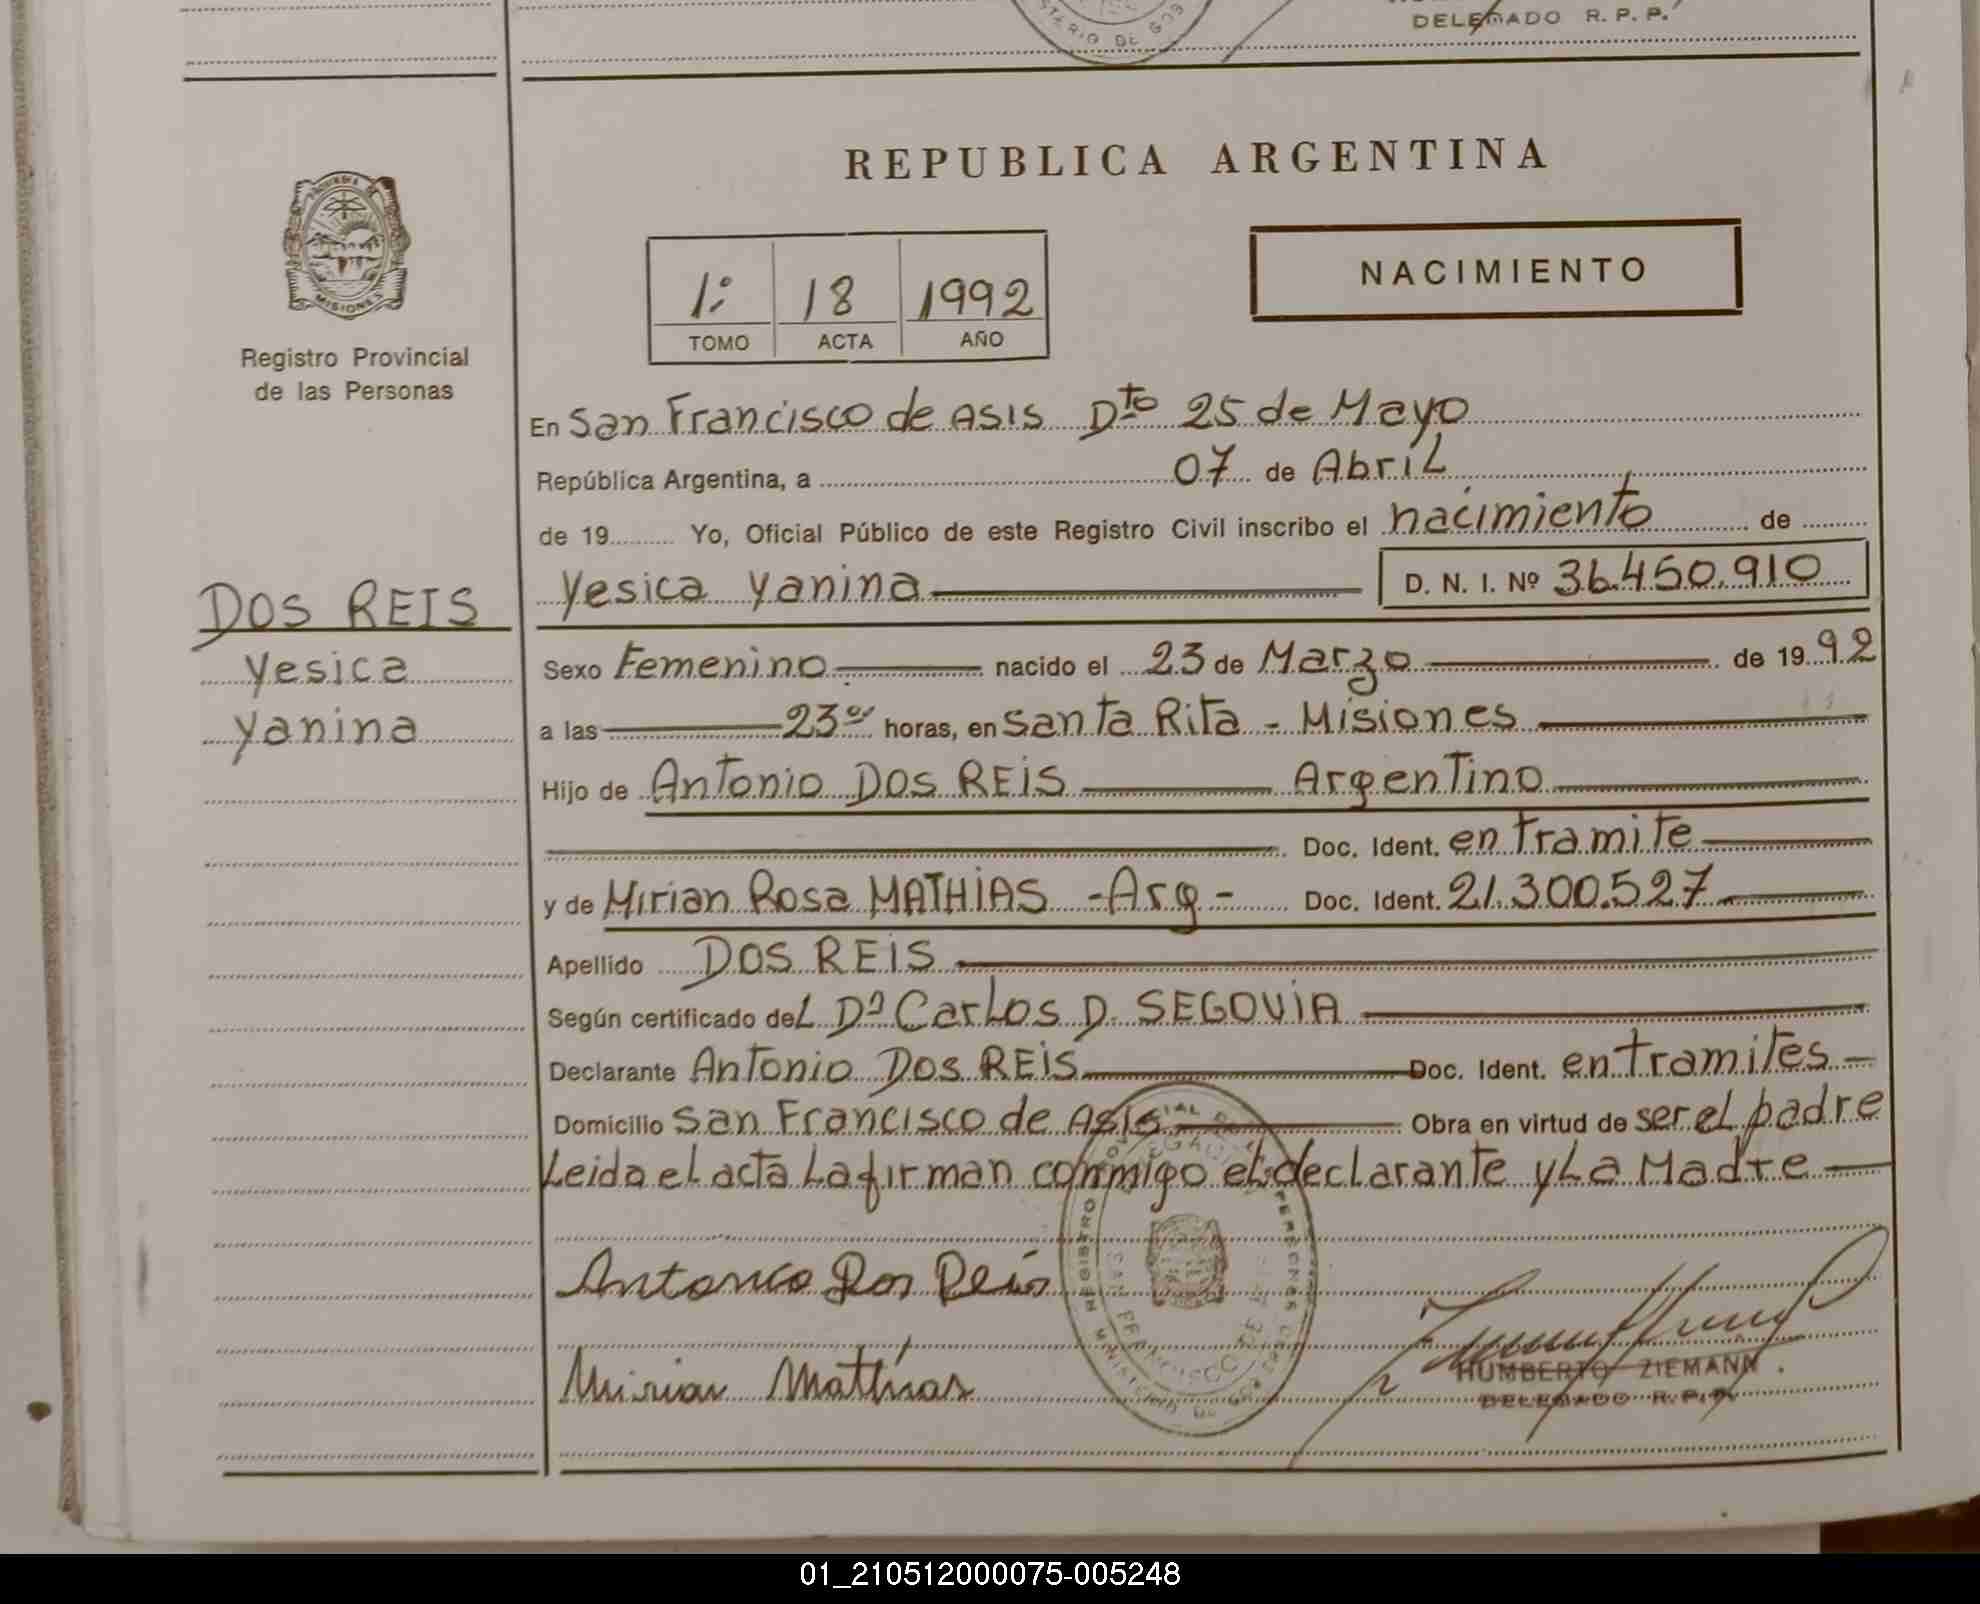 DELEGADO R. P. P.
STERIO DE GOB
REPUBLICA ARGENTINA
MISIONES
1º 18 1992
TOMO ACTA AÑO
NACIMIENTO
Registro Provincial
de las Personas
En San Francisco de ASIS Dto 25 de Mayo
República Argentina, a 07 de Abril
de 19 Yo, Oficial Público de este Registro Civil inscribo el nacimiento de
DOS REIS
Yesica
Yanina
Yesica Yanina D. N. I. Nº 36.450.910
Sexo Femenino nacido el 23 de Marzo de 19 92
a las 23 horas, en Santa Rita - Misiones
Hijo de Antonio DOS REIS Argentino
Doc. Ident. en tramite
y de Mirian Rosa MATHIAS - Arg - Doc. Ident. 21.300.527
Apellido DOS REIS
Según certificado del Dr Carlos D. SEGOVIA
Declarante Antonio DOS REIS Doc. Ident. en tramites
Domicilio San Francisco de Asis Obra en virtud de ser el padre
Leida el acta La firman conmigo el declarante y La Madre
Antonio Dos Reis
Mirian Mathias
HUMBERTO ZIEMANN
DELEGADO R. P. P.
01_210512000075-005248